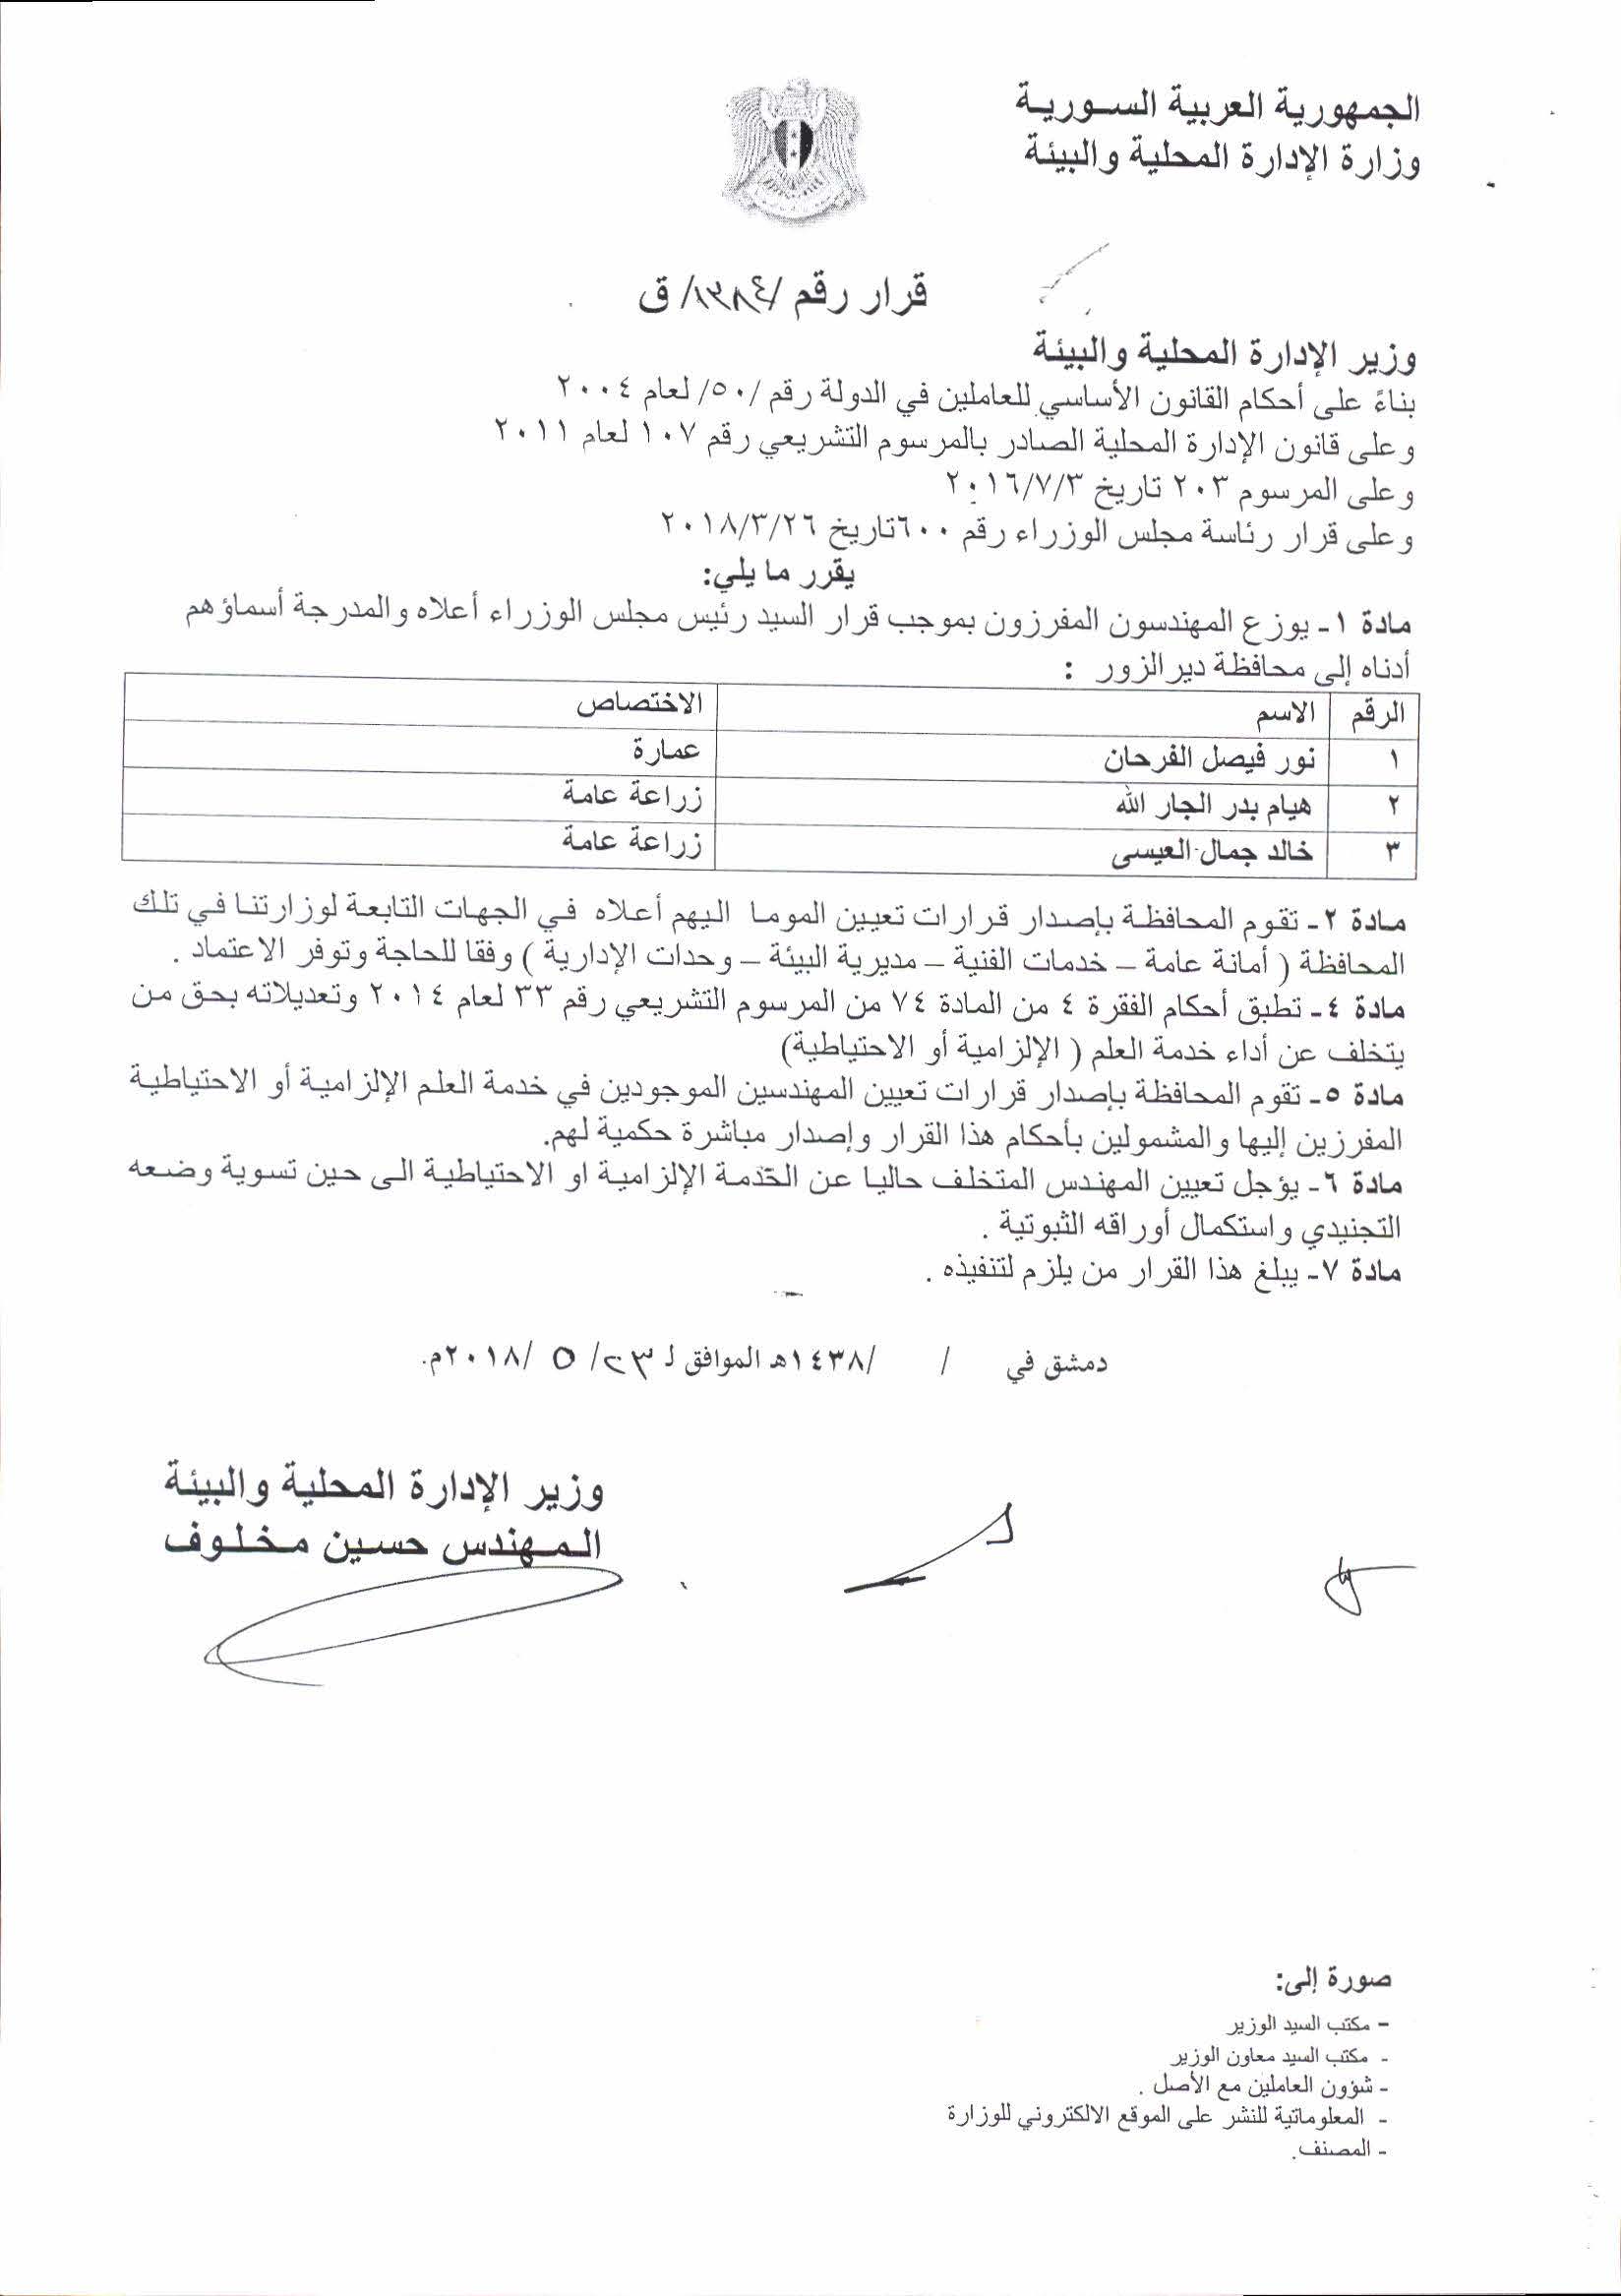 الجمهورية العربية السورية
وزارة الإدارة المحلية والبيئة
قرار رقم /١٣٨٤/ ق
وزير الإدارة المحلية والبيئة
بناءً على أحكام القانون الأساسي للعاملين في الدولة رقم /٥٠/ لعام ٢٠٠٤
وعلى قانون الإدارة المحلية الصادر بالمرسوم التشريعي رقم ١٠٧ لعام ٢٠١١
وعلى المرسوم ٢٠٣ تاريخ ٢٠١٦/٧/٣
وعلى قرار رئاسة مجلس الوزراء رقم ٦٠٠تاريخ ٢٠١٨/٣/٢٦
يقرر ما يلي:
مادة ١- يوزع المهندسون المفرزون بموجب قرار السيد رئيس مجلس الوزراء أعلاه والمدرجة أسماؤهم
أدناه إلى محافظة دير الزور :
الرقم الاسم الاختصاص
١ نور فيصل الفرحان عمارة
٢ هيام بدر الجار الله زراعة عامة
٣ خالد جمال العيسى زراعة عامة
مادة ٢- تقوم المحافظة بإصدار قرارات تعيين الموما اليهم أعلاه في الجهات التابعة لوزارتنا في تلك
المحافظة ( أمانة عامة – خدمات الفنية – مديرية البيئة – وحدات الإدارية ) وفقا للحاجة وتوفر الاعتماد .
مادة ٤- تطبق أحكام الفقرة ٤ من المادة ٧٤ من المرسوم التشريعي رقم ٣٣ لعام ٢٠١٤ وتعديلاته بحق من
يتخلف عن أداء خدمة العلم ( الإلزامية أو الاحتياطية)
مادة ٥- تقوم المحافظة بإصدار قرارات تعيين المهندسين الموجودين في خدمة العلم الإلزامية أو الاحتياطية
المفرزين إليها والمشمولين بأحكام هذا القرار وإصدار مباشرة حكمية لهم.
مادة ٦- يؤجل تعيين المهندس المتخلف حاليا عن الخدمة الإلزامية او الاحتياطية الى حين تسوية وضعه
التجنيدي واستكمال أوراقه الثبوتية .
مادة ٧- يبلغ هذا القرار من يلزم لتنفيذه .
دمشق في / /١٤٣٨هـ الموافق لـ ٢٣/ ٥ /٢٠١٨م.
وزير الإدارة المحلية والبيئة
المهندس حسين مخلوف
صورة إلى:
– مكتب السيد الوزير
- مكتب السيد معاون الوزير
- شؤون العاملين مع الأصل .
- المعلوماتية للنشر على الموقع الالكتروني للوزارة
- المصنف.